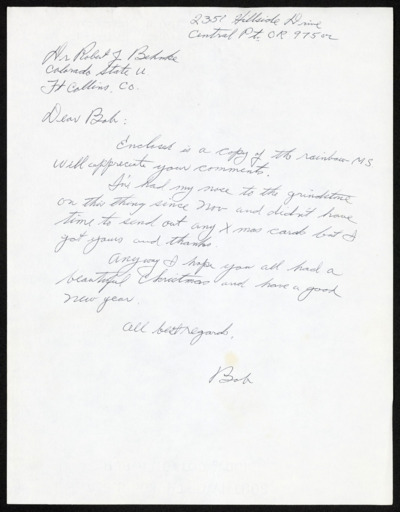 2351 Hillside Drive
Central Pt. OR 97502
Dr Robert J Behnke
Colorado State U
Ft Collins, Co.
Dear Bob:
Enclosed is a copy of the rainbow MS
Will appreciate your comments.
I've had my nose to the grindstone
on this thing since Nov and didn't have
time to send out any Xmas cards but I
got yours and thanks.
Anyway I hope you all had a
beautiful Christmas and have a good
New year.
All best regards,
Bob